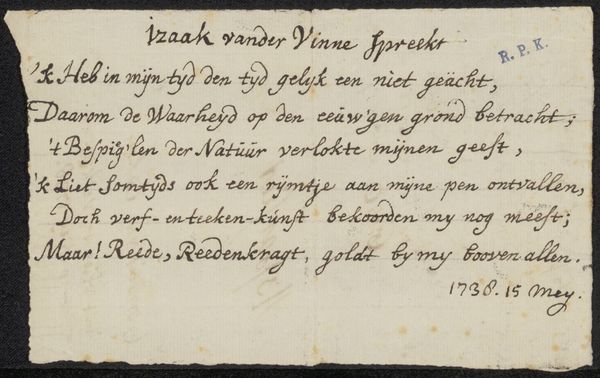 izaak vander Vinne spreekt
R. P. K.
'k Heb in mijn tyd den tyd gelyk een niet geächt,
Daarom de Waarheyd op den eeuw'gen grond betracht;
't Bespieg'len der Natüür verlokte mijnen geest,
'k Liet somtyds ook een rijmtje aan mijne pen ontvallen,
Doch verf- en teeken-kunst bekoorden my nog meest;
Maar! Reede, Reedenkragt, goldt by my booven allen.
1738. 15 Mey.